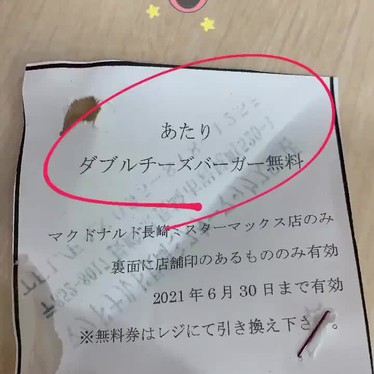 あたり
ダブルチーズバーガー無料
マクドナルド長崎ミスターマックス店のみ
裏面に店舗印のあるもののみ有効
2021年6月30日まで有効
※無料券はレジにて引き換え下さい。